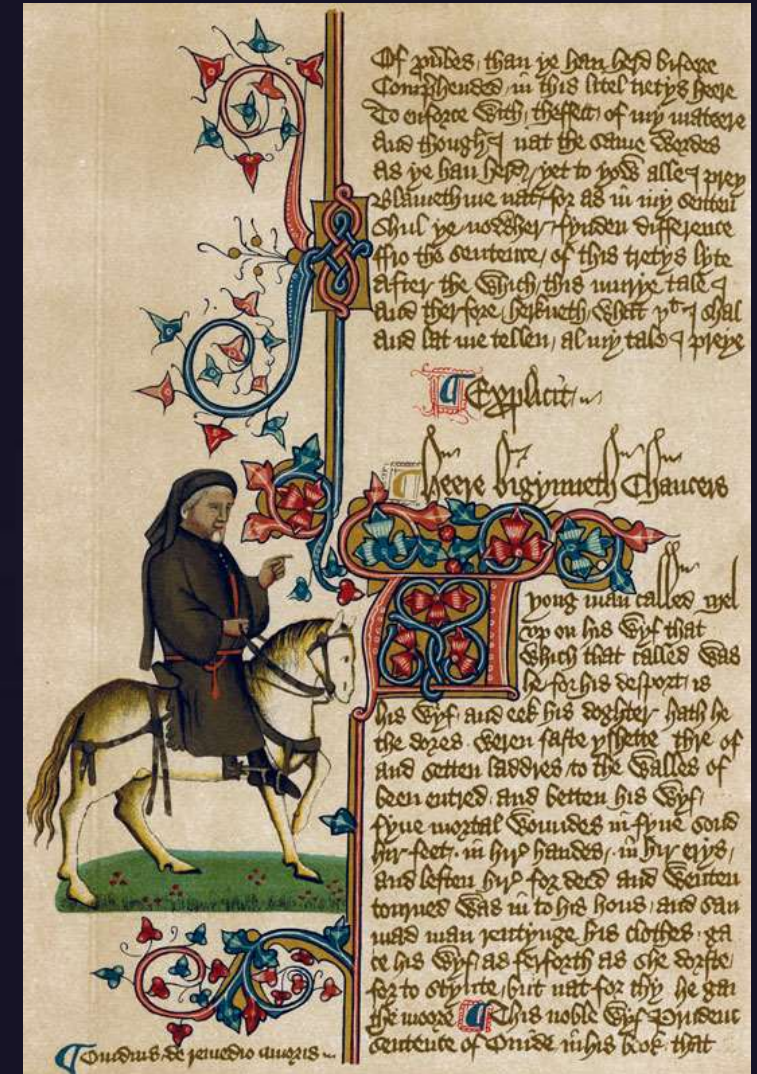 Of prouerbes, than ye han herd bifore
Comprehended, in this litel tretys heere
To enforce with, theffect, of my mateere
And though I nat the same wordes
As ye han herd, yet to yow alle I prey
Blameth me nat, for as in my senten
Shul ye nowher fynden difference
ffro the sentence, of this tretys lyte
After the which, this murye tale I
And therfore, herkneth, what yt I shal
And lat me tellen, al my tale I preye
Explicit
Heere bigynneth Chaucers
yong man called mel
vp on his wyf that
which that called was
he for his desport, is
his wyf, and eek his doghter hath he
the dores weren faste yshette thre of
and setten laddres to the walles of
been entred, and betten his wyf,
fyue mortal woundes in fyue sond
hir feet, in hir handes, in hir erys,
and leften hir for deed and wenten
tourned was in to his hous, and sau
mad man rentynge his clothes ga
ce his wyf, as ferforth as she dorste,
for to stynte, but nat for thy he gan
the moore This noble wyf Prudent
sentence of Ouide, in his book, that
Ouidius, de remedio amoris